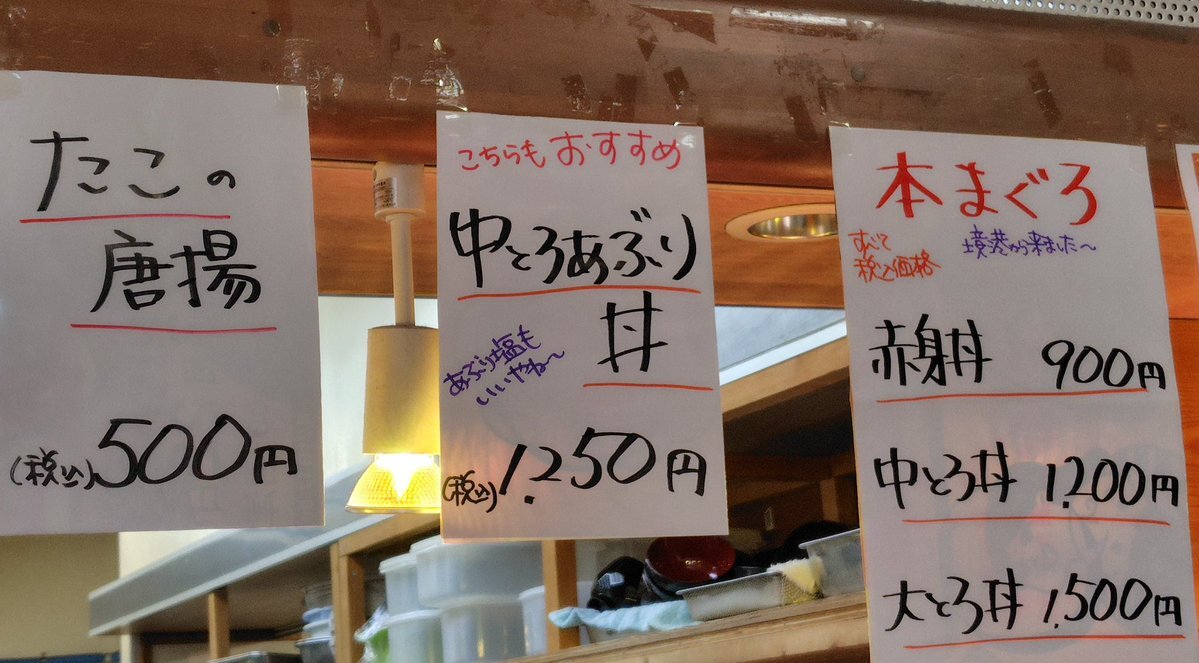 たこの
唐揚
(税込)500円
こちらもおすすめ
中とろあぶり
丼
あぶり塩も
いいやね〜
(税込)1,250円
本まぐろ
すべて
税込価格
境港から来ました〜
赤身丼 900円
中とろ丼 1,200円
大とろ丼 1,500円